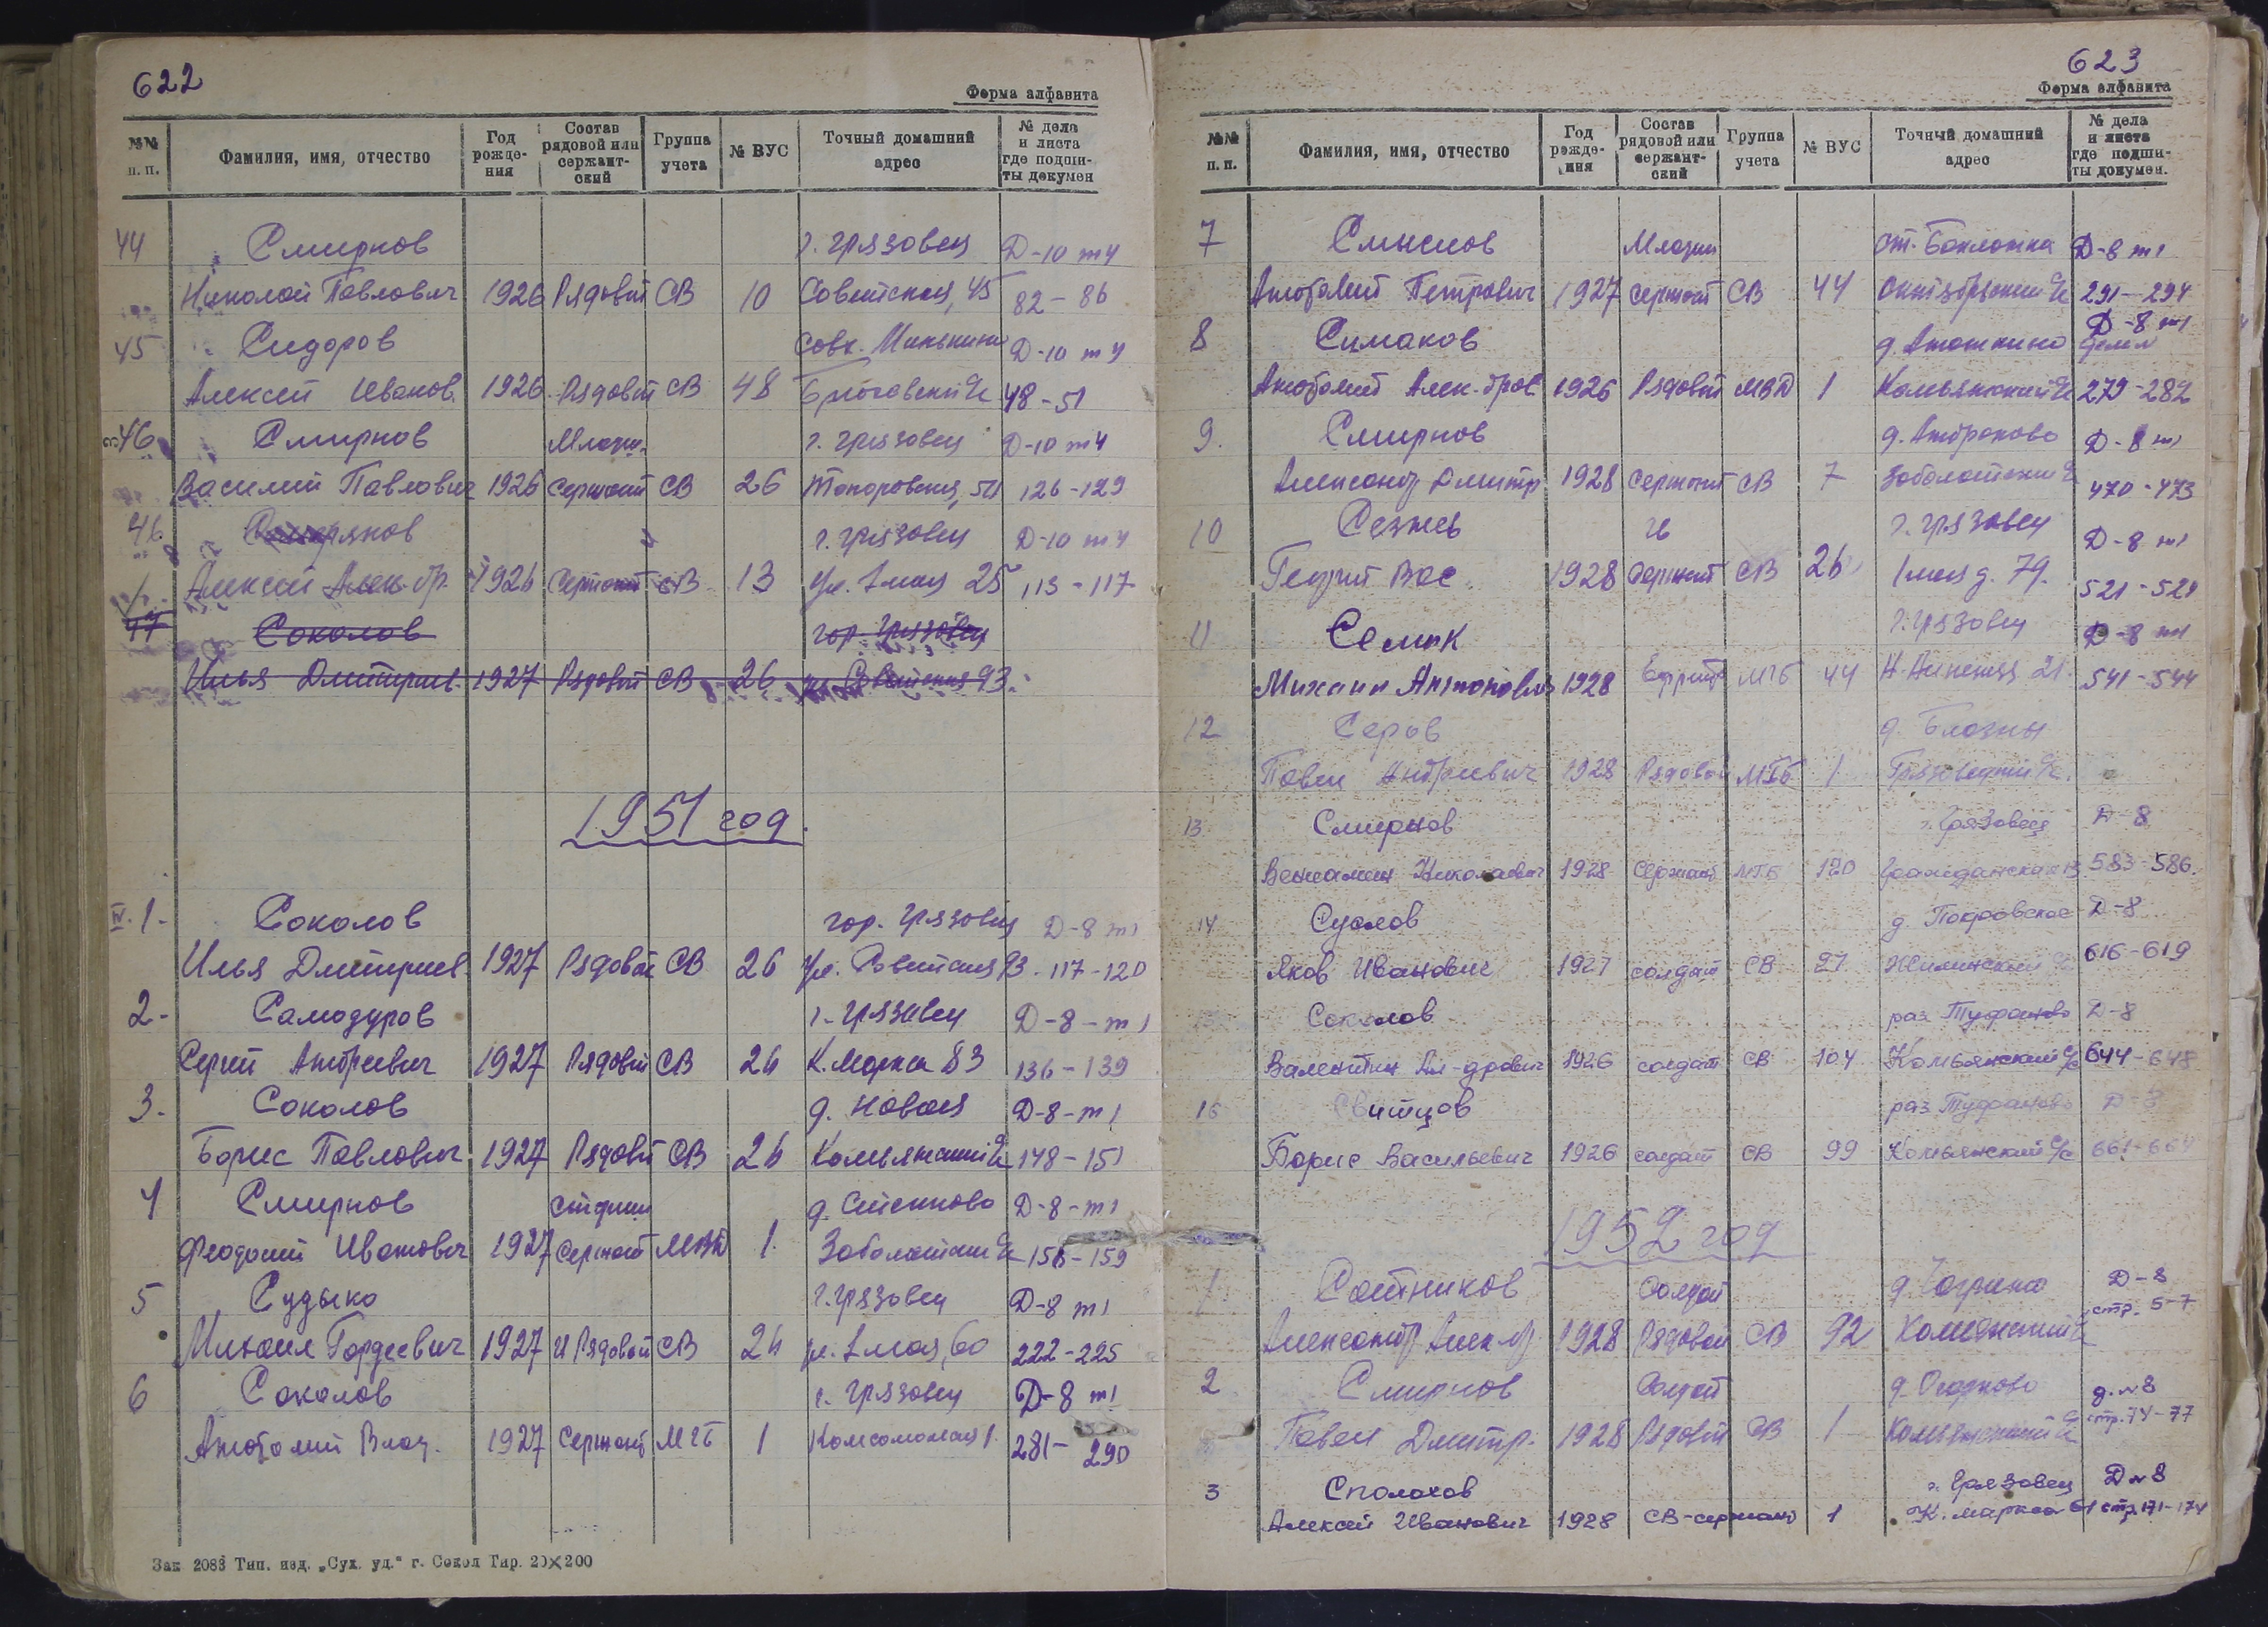 622
Форма алфавита
№№ п. п. Фамилия, имя, отчество Год рожде-ния Состав рядовой или сержант-ский Группа учета № ВУС Точный домашний адрес № дела и листа где подши-ты докумен
44 Смирнов г. Грязовец Д-10 т4
Николай Павлович 1926 Рядовой СВ 10 Советская, 45 82-86
45 Сидоров совх. Минькино Д-10 т4
Алексей Иванов. 1926 Рядовой СВ 48 48-51
46 Смирнов Младш. г. Грязовец Д-10 т4
Василий Павлович 1926 Сержант СВ 26 Топоровская, 54 126-129
46 г. Грязовец Д-10 т4
Алексей Алек-др. 1926 Сержант СВ 13 ул. 1 мая 25 113-117
47 Соколов гор. Грязовец
Илья Дмитриев. 1927 Рядовой СВ 26 ул. Советская 93.
1951 год.
IV. 1- Соколов гор. Грязовец Д-8 т1
Илья Дмитриев. 1927 Рядовой СВ 26 ул. Советская 93. 117-120
2- Самодуров г. Грязовец Д-8-т1
Сергей Андреевич 1927 Рядовой СВ 26 К. Маркса 83 136-139
3. Соколов д. Новая Д-8-т1
Борис Павлович 1927 Рядовой СВ 26 Комьянский с/с 148-151
4 Смирнов Старши д. Степково Д-8-т1
Феодосий Иванович 1927 Сержант МВД 1. Заболотский с/с 156-159
5 Судыко г. Грязовец Д-8 т1
Михаил Гордеевич 1927 Рядовой СВ 26 ул. 1 мая, 60 222-225
6 Соколов г. Грязовец Д-8 т1
Анатолий Влад. 1927 Сержант МГБ 1 Комсомольская 1. 281-290
Зак 2083 Тип. изд. „Сух. уд.“ г. Сокол Тир. 20×200
623
Форма алфавита
№№ п. п. Фамилия, имя, отчество Год рожде-ния Состав рядовой или сержант-ский Группа учета № ВУС Точный домашний адрес № дела и листа где подши-ты докумен.
7 Смыслов Младш ст. Бакланка Д-8 т1
Анатолий Петрович 1927 Сержант СВ 44 Октябрьский с/с 291-294
8 Симаков д. Аношкино Д-8 т1
Анатолий Алек-дров. 1926 Рядовой МВД 1 Комьянский с/с 279-282
9. Смирнов Д-8 т1
Александр Дмитр 1928 Сержант СВ 7 Заболотский с/с 470-473
10 г. Грязовец Д-8 т1
Георгий Вас. 1928 Сержант СВ 26 1 мая д. 79. 521-524
11 Семик г. Грязовец Д-8 т1
Михаил Антонович 1928 Ефрейт МГБ 44 21. 541-544
12 Серов
Павел Андреевич 1928 Рядовой МГБ 1 Грязовецкий с/с.
13 Смирнов г. Грязовец Д-8
Вениамин Николаевич 1928 Сержант МГБ 120 Гражданская 583-586.
14 Суслов д. Покровское Д-8
Яков Иванович 1927 солдат СВ 27 Жилинский с/с 616-619
Соколов раз Туфаново Д-8
Валентин Ал-дрович 1926 солдат СВ 104 Комьянский с/с 644-648
16 Свитцов раз Туфаново Д-8
Борис Васильевич 1926 солдат СВ 99 Комьянский с/с 661-664
1952 год
1 Сотников Солдат Д-8
Александр Алек-др 1928 Рядовой СВ 92 Комьянский с/с стр. 5-7
2 Смирнов Солдат д. Огарково д. №8
Павел Дмитр. 1928 Рядовой СВ 1 Комьянский с/с стр. 74-77
3 Сполохов г. Грязовец Д №8
Алексей Иванович 1928 СВ-сержант 1 К. маркса 61 стр. 171-174